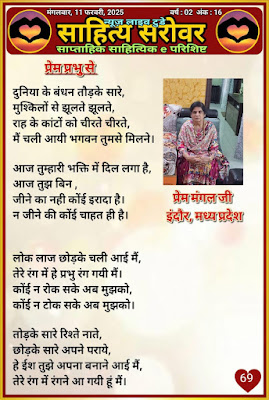 मंगलवार, 11 फरवरी, 2025
वर्ष : 02 अंक : 16
न्यूज लाइव टुडे
साहित्य सरोवर
साप्ताहिक साहित्यिक e परिशिष्ट
प्रेम प्रभु से
दुनिया के बंधन तौड़के सारे,
मुश्किलों से झूलते झूलते,
राह के कांटों को चीरते चीरते,
मैं चली आयी भगवन तुमसे मिलने।
आज तुम्हारी भक्ति में दिल लगा है,
आज तुझ बिन ,
जीने का नही कोंई इरादा है।
न जीने की कोंई चाहत ही है।
प्रेम मंगल जी
इंदौर, मध्य प्रदेश
लोक लाज छोड़के चली आई मैं,
तेरे रंग में हे प्रभु रंग गयी मैं।
कोंई न रोक सके अब मुझको,
कोंई न टोक सके अब मुझको।
तोड़के सारे रिश्ते नाते,
छोड़के सारे अपने पराये,
हे ईश तुझे अपना बनाने आई मैं,
तेरे रंग में रंगने आ गयी हूं मैं।
69